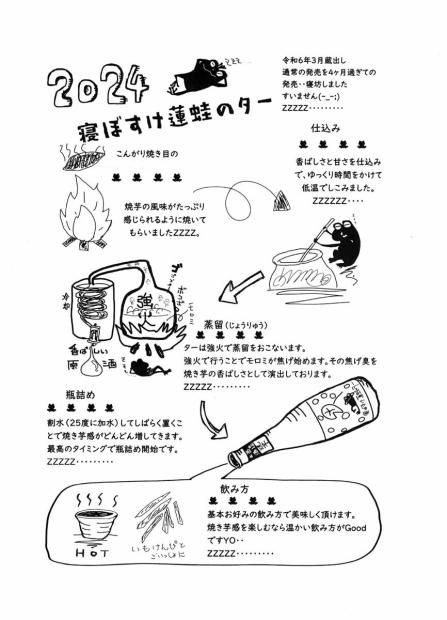 2024
寝ぼすけ蓮蛙のター
zzzz
令和6年3月蔵出し
通常の発売を4ヶ月過ぎての
発売‥寝坊しました
すいません(-_-;)
ZZZZZ………
こんがり焼き目の
焼芋の風味がたっぷり
感じられるように焼いて
もらいましたZZZZ。
仕込み
香ばしさと甘さを仕込み
で、ゆっくり時間をかけて
低温でしこみました。
ZZZZZZ‥‥
強火
冷却
香ばしい
原酒
蒸留(じょうりゅう)
ターは強火で蒸留をおこないます。
強火で行うことでモロミが焦げ始めます。その焦げ臭を
焼き芋の香ばしさとして演出しております。
ZZZZZ………
瓶詰め
割水(25度に加水)してしばらく置くこ
とで焼き芋感がどんどん増してきます。
最高のタイミングで瓶詰め開始です。
ZZZZZ………
飲み方
基本お好みの飲み方で美味しく頂けます。
焼き芋感を楽しむなら温かい飲み方がGood
ですYO‥
ZZZZZ………
HOT
いもけんぴと
ごいっしょに